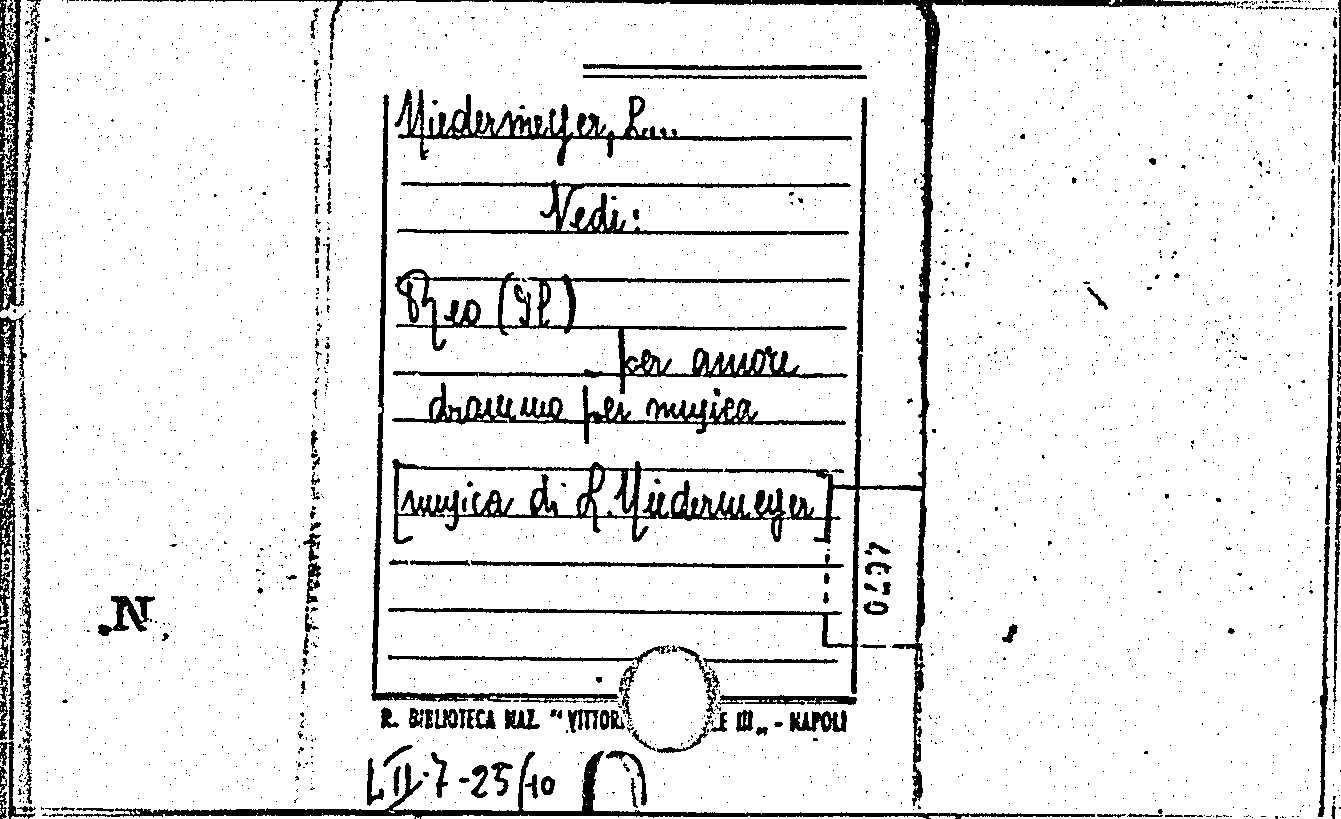 Niedermeyer, L...
Vedi:
Reo (Il)
per amore
dramma per musica
[musica di L. Niedermeyer]
0797
N.
R. BIBLIOTECA NAZ. "VITTOR E III„ - NAPOLI
L II-7-25/10